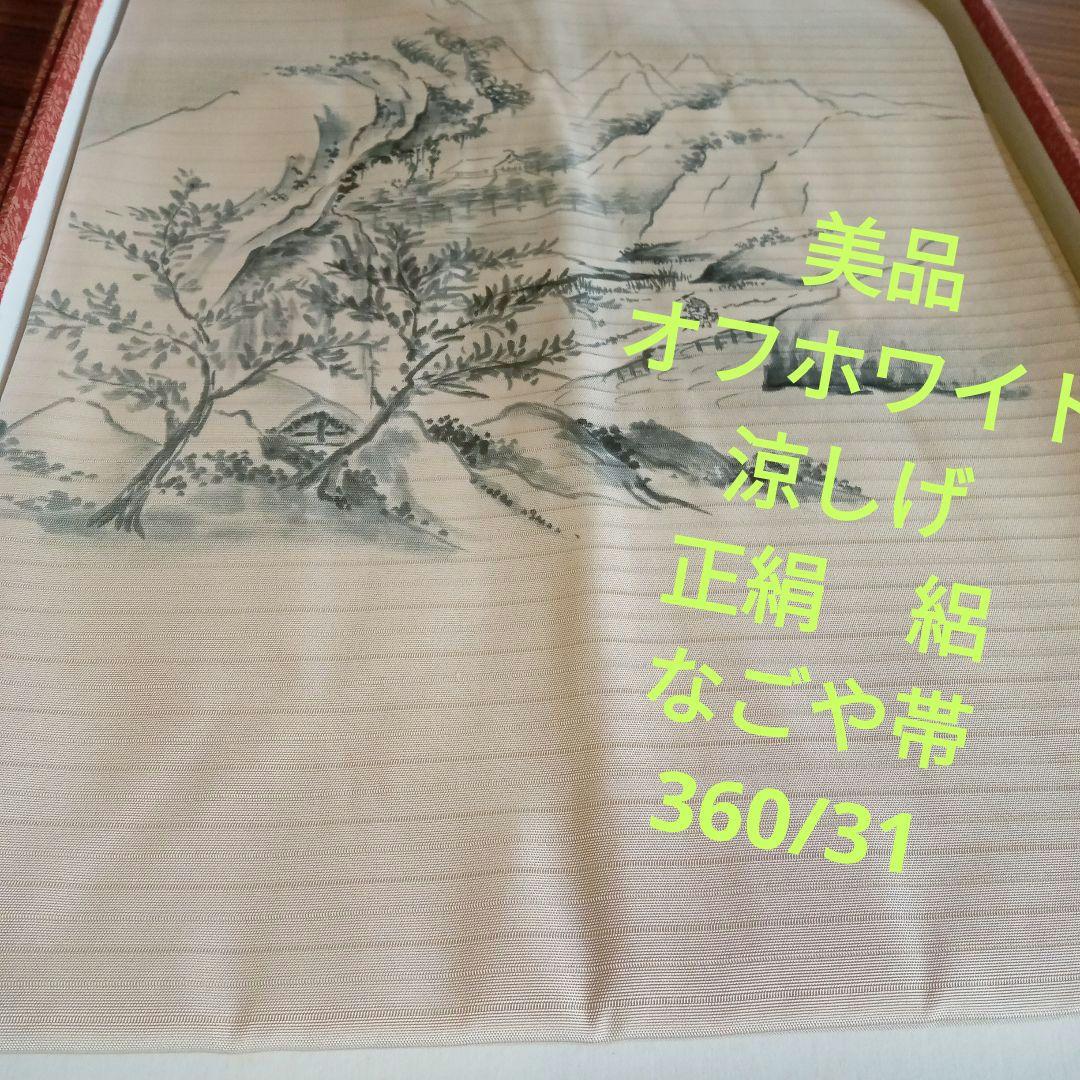 美品
オフホワイト
涼しげ
正絹　絽
なごや帯
360/31